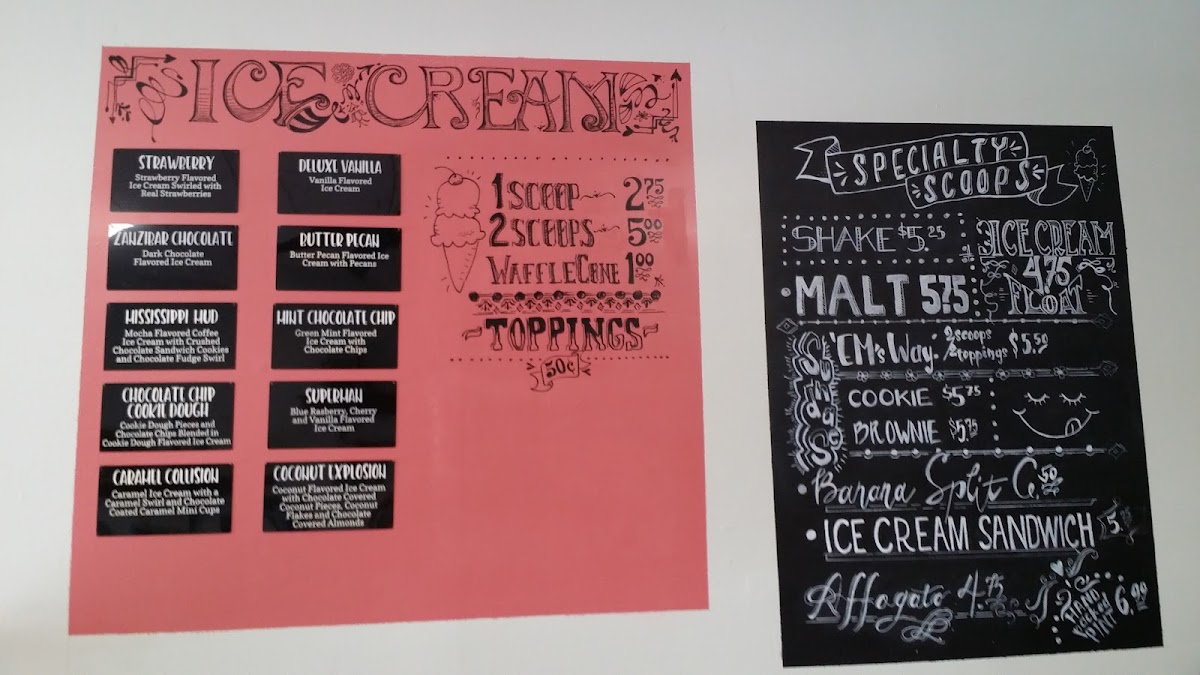 ICE CREAM
STRAWBERRY
Strawberry Flavored
Ice Cream Swirled with
Real Strawberries
DELUXE VANILLA
Vanilla Flavored
Ice Cream
ZANZIBAR CHOCOLATE
Dark Chocolate
Flavored Ice Cream
BUTTER PECAN
Butter Pecan Flavored Ice
Cream with Pecans
MISSISSIPPI MUD
Mocha Flavored Coffee
Ice Cream with Crushed
Chocolate Sandwich Cookies
and Chocolate Fudge Swirl
MINT CHOCOLATE CHIP
Green Mint Flavored
Ice Cream with
Chocolate Chips
CHOCOLATE CHIP
COOKIE DOUGH
Cookie Dough Pieces and
Chocolate Chips Blended in
Cookie Dough Flavored Ice Cream
SUPERMAN
Blue Rasberry, Cherry
and Vanilla Flavored
Ice Cream
CARAMEL COLLISION
Caramel Ice Cream with a
Caramel Swirl and Chocolate
Coated Caramel Mini Cups
COCONUT EXPLOSION
Coconut Flavored Ice Cream
with Chocolate Covered
Coconut Pieces, Coconut
Flakes and Chocolate
Covered Almonds
1 SCOOP 2.75
2 SCOOPS 5.00
WAFFLE CONE 1.00
~TOPPINGS~
50¢
SPECIALTY
SCOOPS
SHAKE $5.25
ICE CREAM
4.75
FLOAT
MALT 5.75
Sundaes
'EM's Way: 2 scoops
2 toppings $5.50
COOKIE $5.75
BROWNIE $5.75
Banana Split 6.50
ICE CREAM SANDWICH 5.
Affogato 4.75
HAND
Packed
pint 6.99